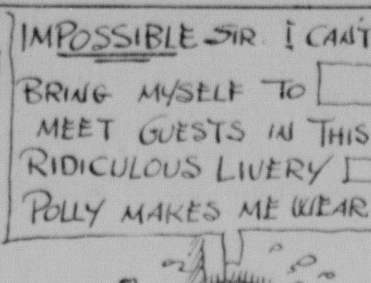 IMPOSSIBLE SIR. I CAN'T
BRING MYSELF TO
MEET GUESTS IN THIS
RIDICULOUS LIVERY
POLLY MAKES ME WEAR